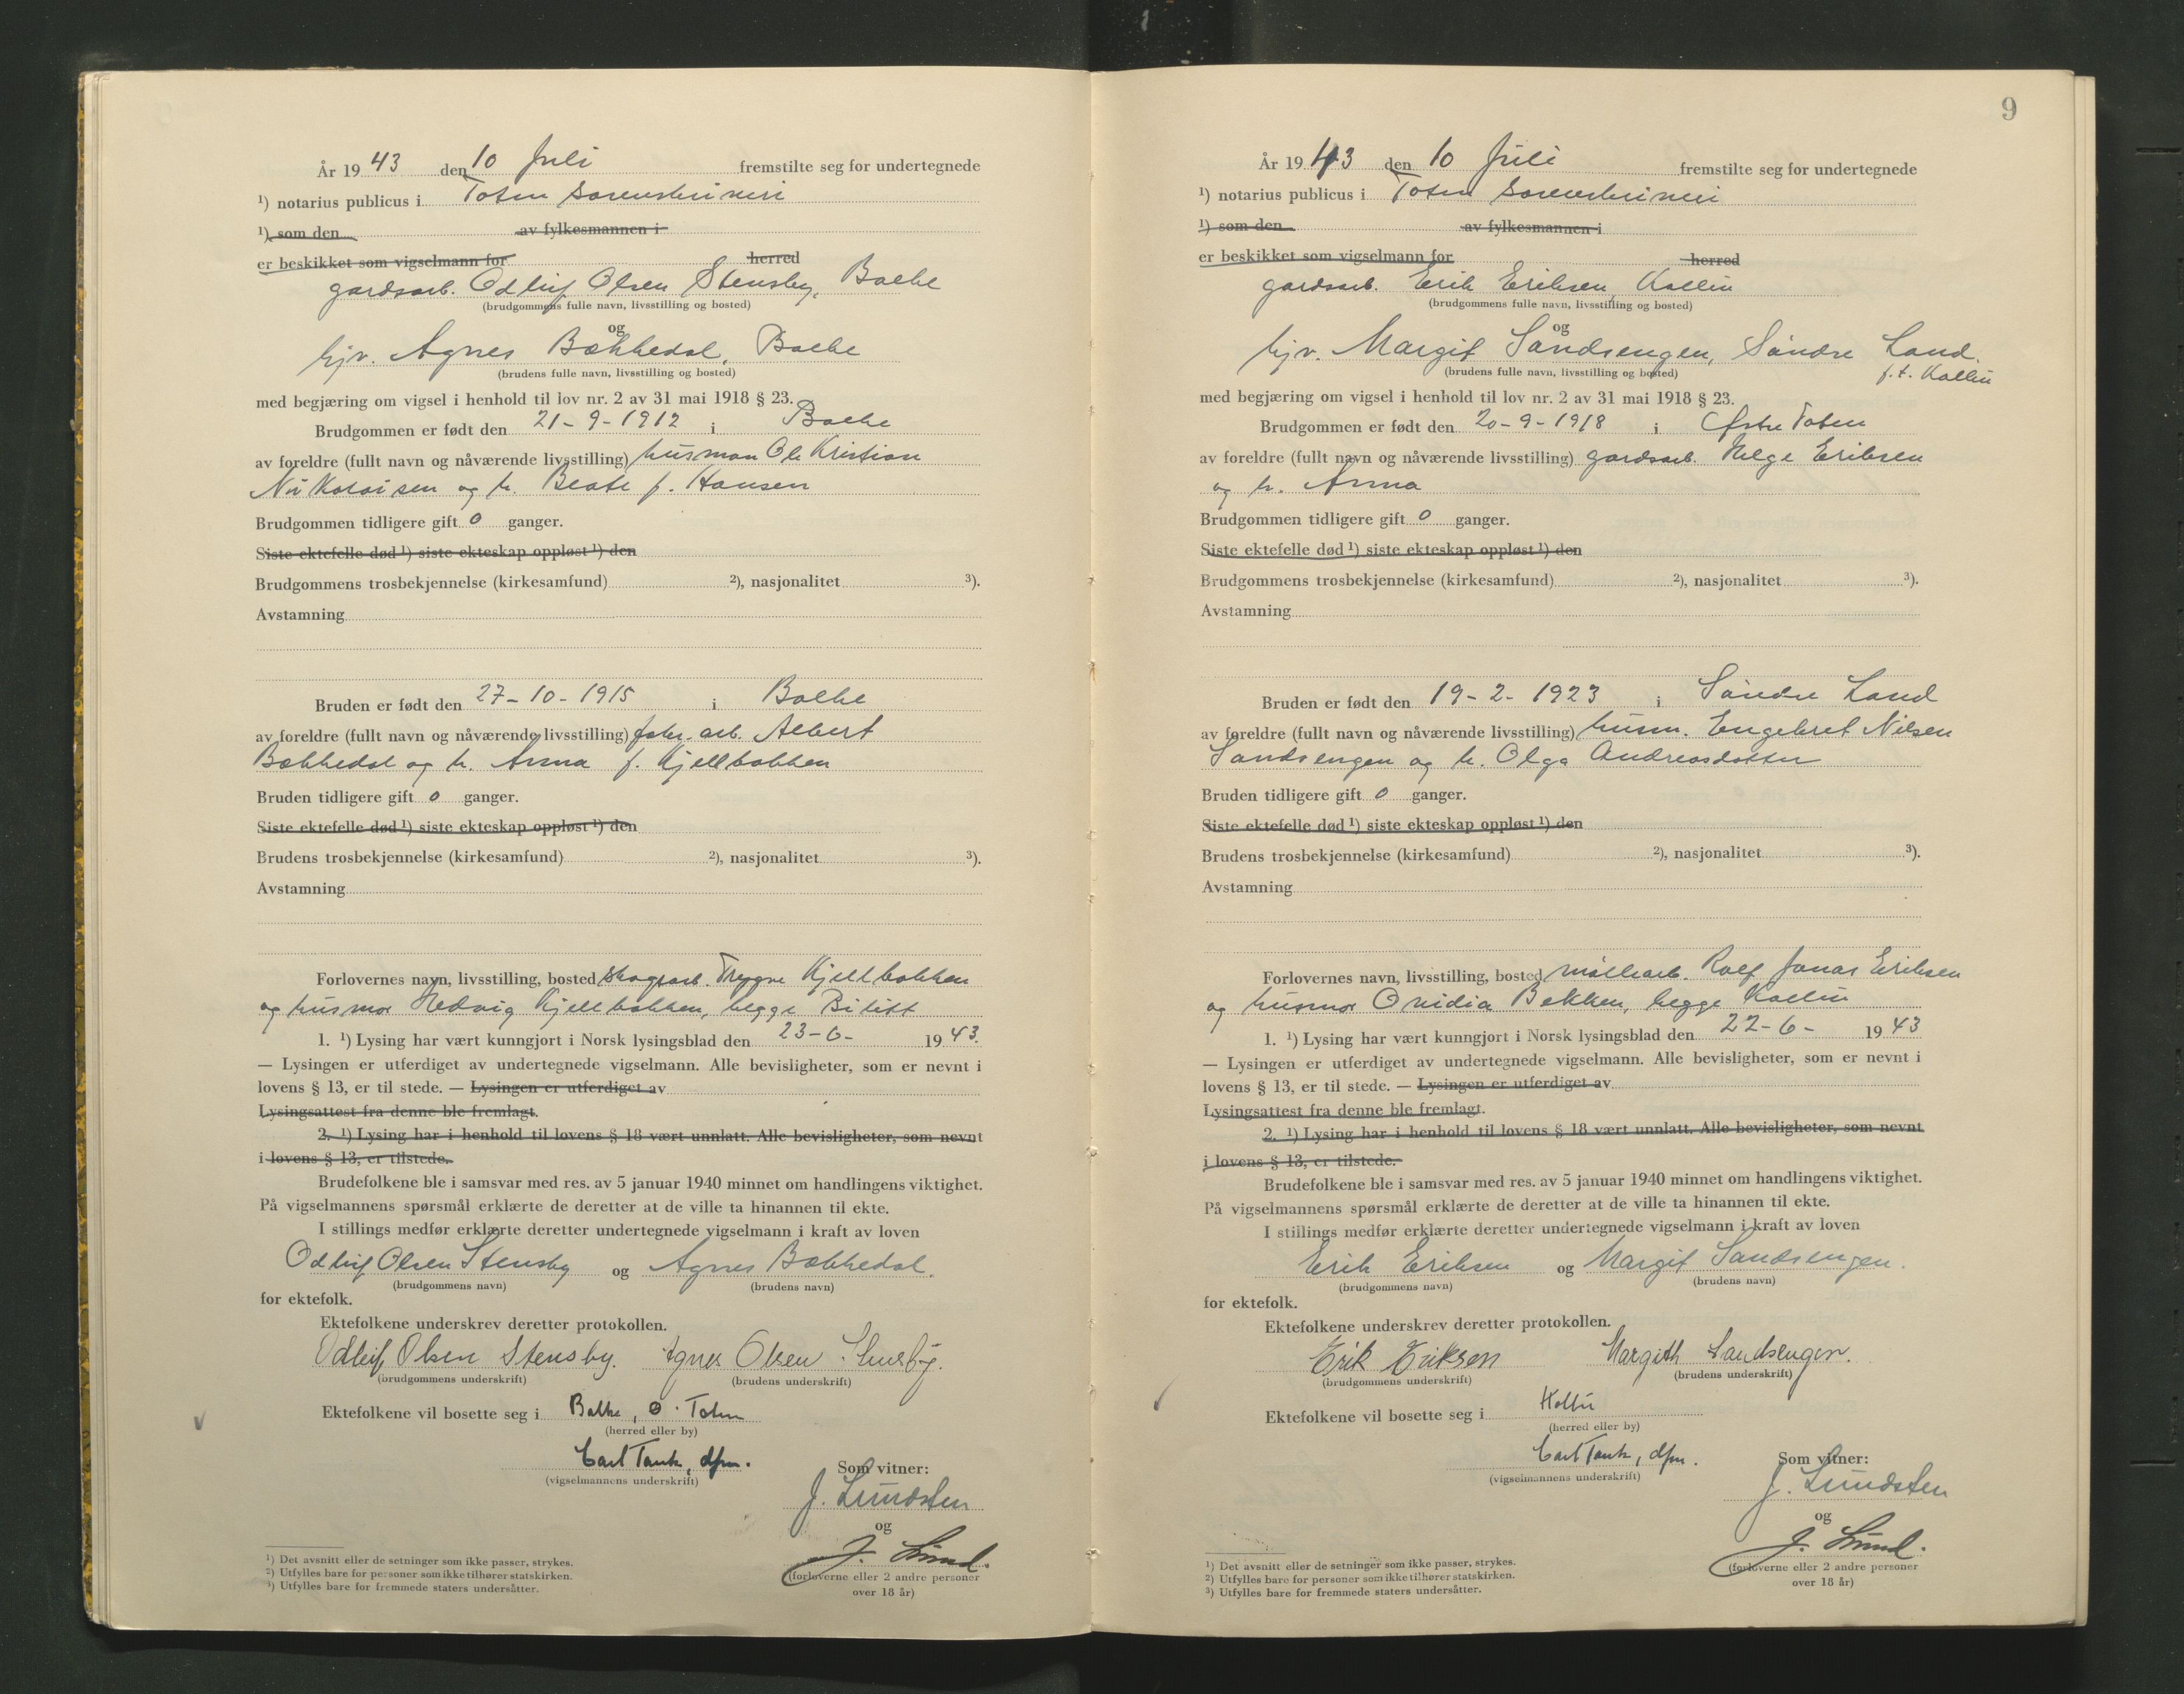 År 19 43 den 10 Juli fremstilte seg for undertegnede
¹) notarius publicus i Toten sorenskriveri
¹) som den av fylkesmannen i
er beskikket som vigselmann for herred
gardsarb. Odleif Olsen Stensby, Balke
(brudgommens fulle navn, livsstilling og bosted)
og
hjv. Agnes Bakkedal, Balke
(brudens fulle navn, livsstilling og bosted)
med begjæring om vigsel i henhold til lov nr. 2 av 31 mai 1918 § 23.
Brudgommen er født den 21-9-1912 i Balke
av foreldre (fullt navn og nåværende livsstilling) husman Ole Kristian
Nikolaisen og h. Beate f. Hansen
Brudgommen tidligere gift 0 ganger.
Siste ektefelle død ¹) siste ekteskap oppløst ¹) den
Brudgommens trosbekjennelse (kirkesamfund) ²), nasjonalitet ³).
Avstamning
Bruden er født den 27-10-1915 i Balke
av foreldre (fullt navn og nåværende livsstilling) fabr. arb. Albert
Bakkedal og h. Anna f. Kjellbakken
Bruden tidligere gift 0 ganger.
Siste ektefelle død ¹) siste ekteskap oppløst ¹) den
Brudens trosbekjennelse (kirkesamfund) ²), nasjonalitet ³).
Avstamning
Forlovernes navn, livsstilling, bosted skogsarb. Trygve Kjellbakken
og husmor Hedvig Kjellbakken, begge Bilitt
1. ¹) Lysing har vært kunngjort i Norsk lysingsblad den 23-6- 19 43.
— Lysingen er utferdiget av undertegnede vigselmann. Alle bevisligheter, som er nevnt i
lovens § 13, er til stede. — Lysingen er utferdiget av
Lysingsattest fra denne ble fremlagt.
2. ¹) Lysing har i henhold til lovens § 18 vært unnlatt. Alle bevisligheter, som nevnt
i lovens § 13, er tilstede.
Brudefolkene ble i samsvar med res. av 5 januar 1940 minnet om handlingens viktighet.
På vigselmannens spørsmål erklærte de deretter at de ville ta hinannen til ekte.
I stillings medfør erklærte deretter undertegnede vigselmann i kraft av loven
Odleif Olsen Stensby og Agnes Bakkedal.
(brudgommens navn) (brudens navn)
for ektefolk.
Ektefolkene underskrev deretter protokollen.
Odleif Olsen Stensby. Agnes Olsen Stensby.
(brudgommens underskrift) (brudens underskrift)
Ektefolkene vil bosette seg i Balke, Ø. Toten
(herred eller by)
Carl Tank, dfm.
(vigselmannens underskrift)
Som vitner:
J. Lundsten
og
J. Lund.
(forloverne eller 2 andre personer
over 18 år)
¹) Det avsnitt eller de setninger som ikke passer, strykes.
²) Utfylles bare for personer som ikke tilhører statskirken.
³) Utfylles bare for fremmede staters undersåtter.
9
År 19 43 den 10 Juli fremstilte seg for undertegnede
¹) notarius publicus i Toten sorenskriveri
¹) som den av fylkesmannen i
er beskikket som vigselmann for herred
gardsarb. Erik Eriksen, Kolbu
(brudgommens fulle navn, livsstilling og bosted)
og
hjv. Margit Sandsengen, Søndre Land.
f. t. Kolbu
(brudens fulle navn, livsstilling og bosted)
med begjæring om vigsel i henhold til lov nr. 2 av 31 mai 1918 § 23.
Brudgommen er født den 20-9-1918 i Østre Toten
av foreldre (fullt navn og nåværende livsstilling) gardsarb. Helge Eriksen
og h. Anna
Brudgommen tidligere gift 0 ganger.
Siste ektefelle død ¹) siste ekteskap oppløst ¹) den
Brudgommens trosbekjennelse (kirkesamfund) ²), nasjonalitet ³).
Avstamning
Bruden er født den 19-2-1923 i Søndre Land
av foreldre (fullt navn og nåværende livsstilling) husm. Engebret Nilsen
Sandsengen og h. Olga Andreasdatter
Bruden tidligere gift 0 ganger.
Siste ektefelle død ¹) siste ekteskap oppløst ¹) den
Brudens trosbekjennelse (kirkesamfund) ²), nasjonalitet ³).
Avstamning
Forlovernes navn, livsstilling, bosted møllearb. Rolf Jonas Eriksen
og husmor Ovidia Bekken, begge Kolbu
1. ¹) Lysing har vært kunngjort i Norsk lysingsblad den 22-6- 19 43
— Lysingen er utferdiget av undertegnede vigselmann. Alle bevisligheter, som er nevnt i
lovens § 13, er til stede. — Lysingen er utferdiget av
Lysingsattest fra denne ble fremlagt.
2. ¹) Lysing har i henhold til lovens § 18 vært unnlatt. Alle bevisligheter, som nevnt
i lovens § 13, er tilstede.
Brudefolkene ble i samsvar med res. av 5 januar 1940 minnet om handlingens viktighet.
På vigselmannens spørsmål erklærte de deretter at de ville ta hinannen til ekte.
I stillings medfør erklærte deretter undertegnede vigselmann i kraft av loven
Erik Eriksen og Margit Sandsengen.
(brudgommens navn) (brudens navn)
for ektefolk.
Ektefolkene underskrev deretter protokollen.
Erik Eriksen Margith Sandsengen.
(brudgommens underskrift) (brudens underskrift)
Ektefolkene vil bosette seg i Kolbu
(herred eller by)
Carl Tank, dfm.
(vigselmannens underskrift)
Som vitner:
J. Lundsten
og
J. Lund.
(forloverne eller 2 andre personer
over 18 år)
¹) Det avsnitt eller de setninger som ikke passer, strykes.
²) Utfylles bare for personer som ikke tilhører statskirken.
³) Utfylles bare for fremmede staters undersåtter.